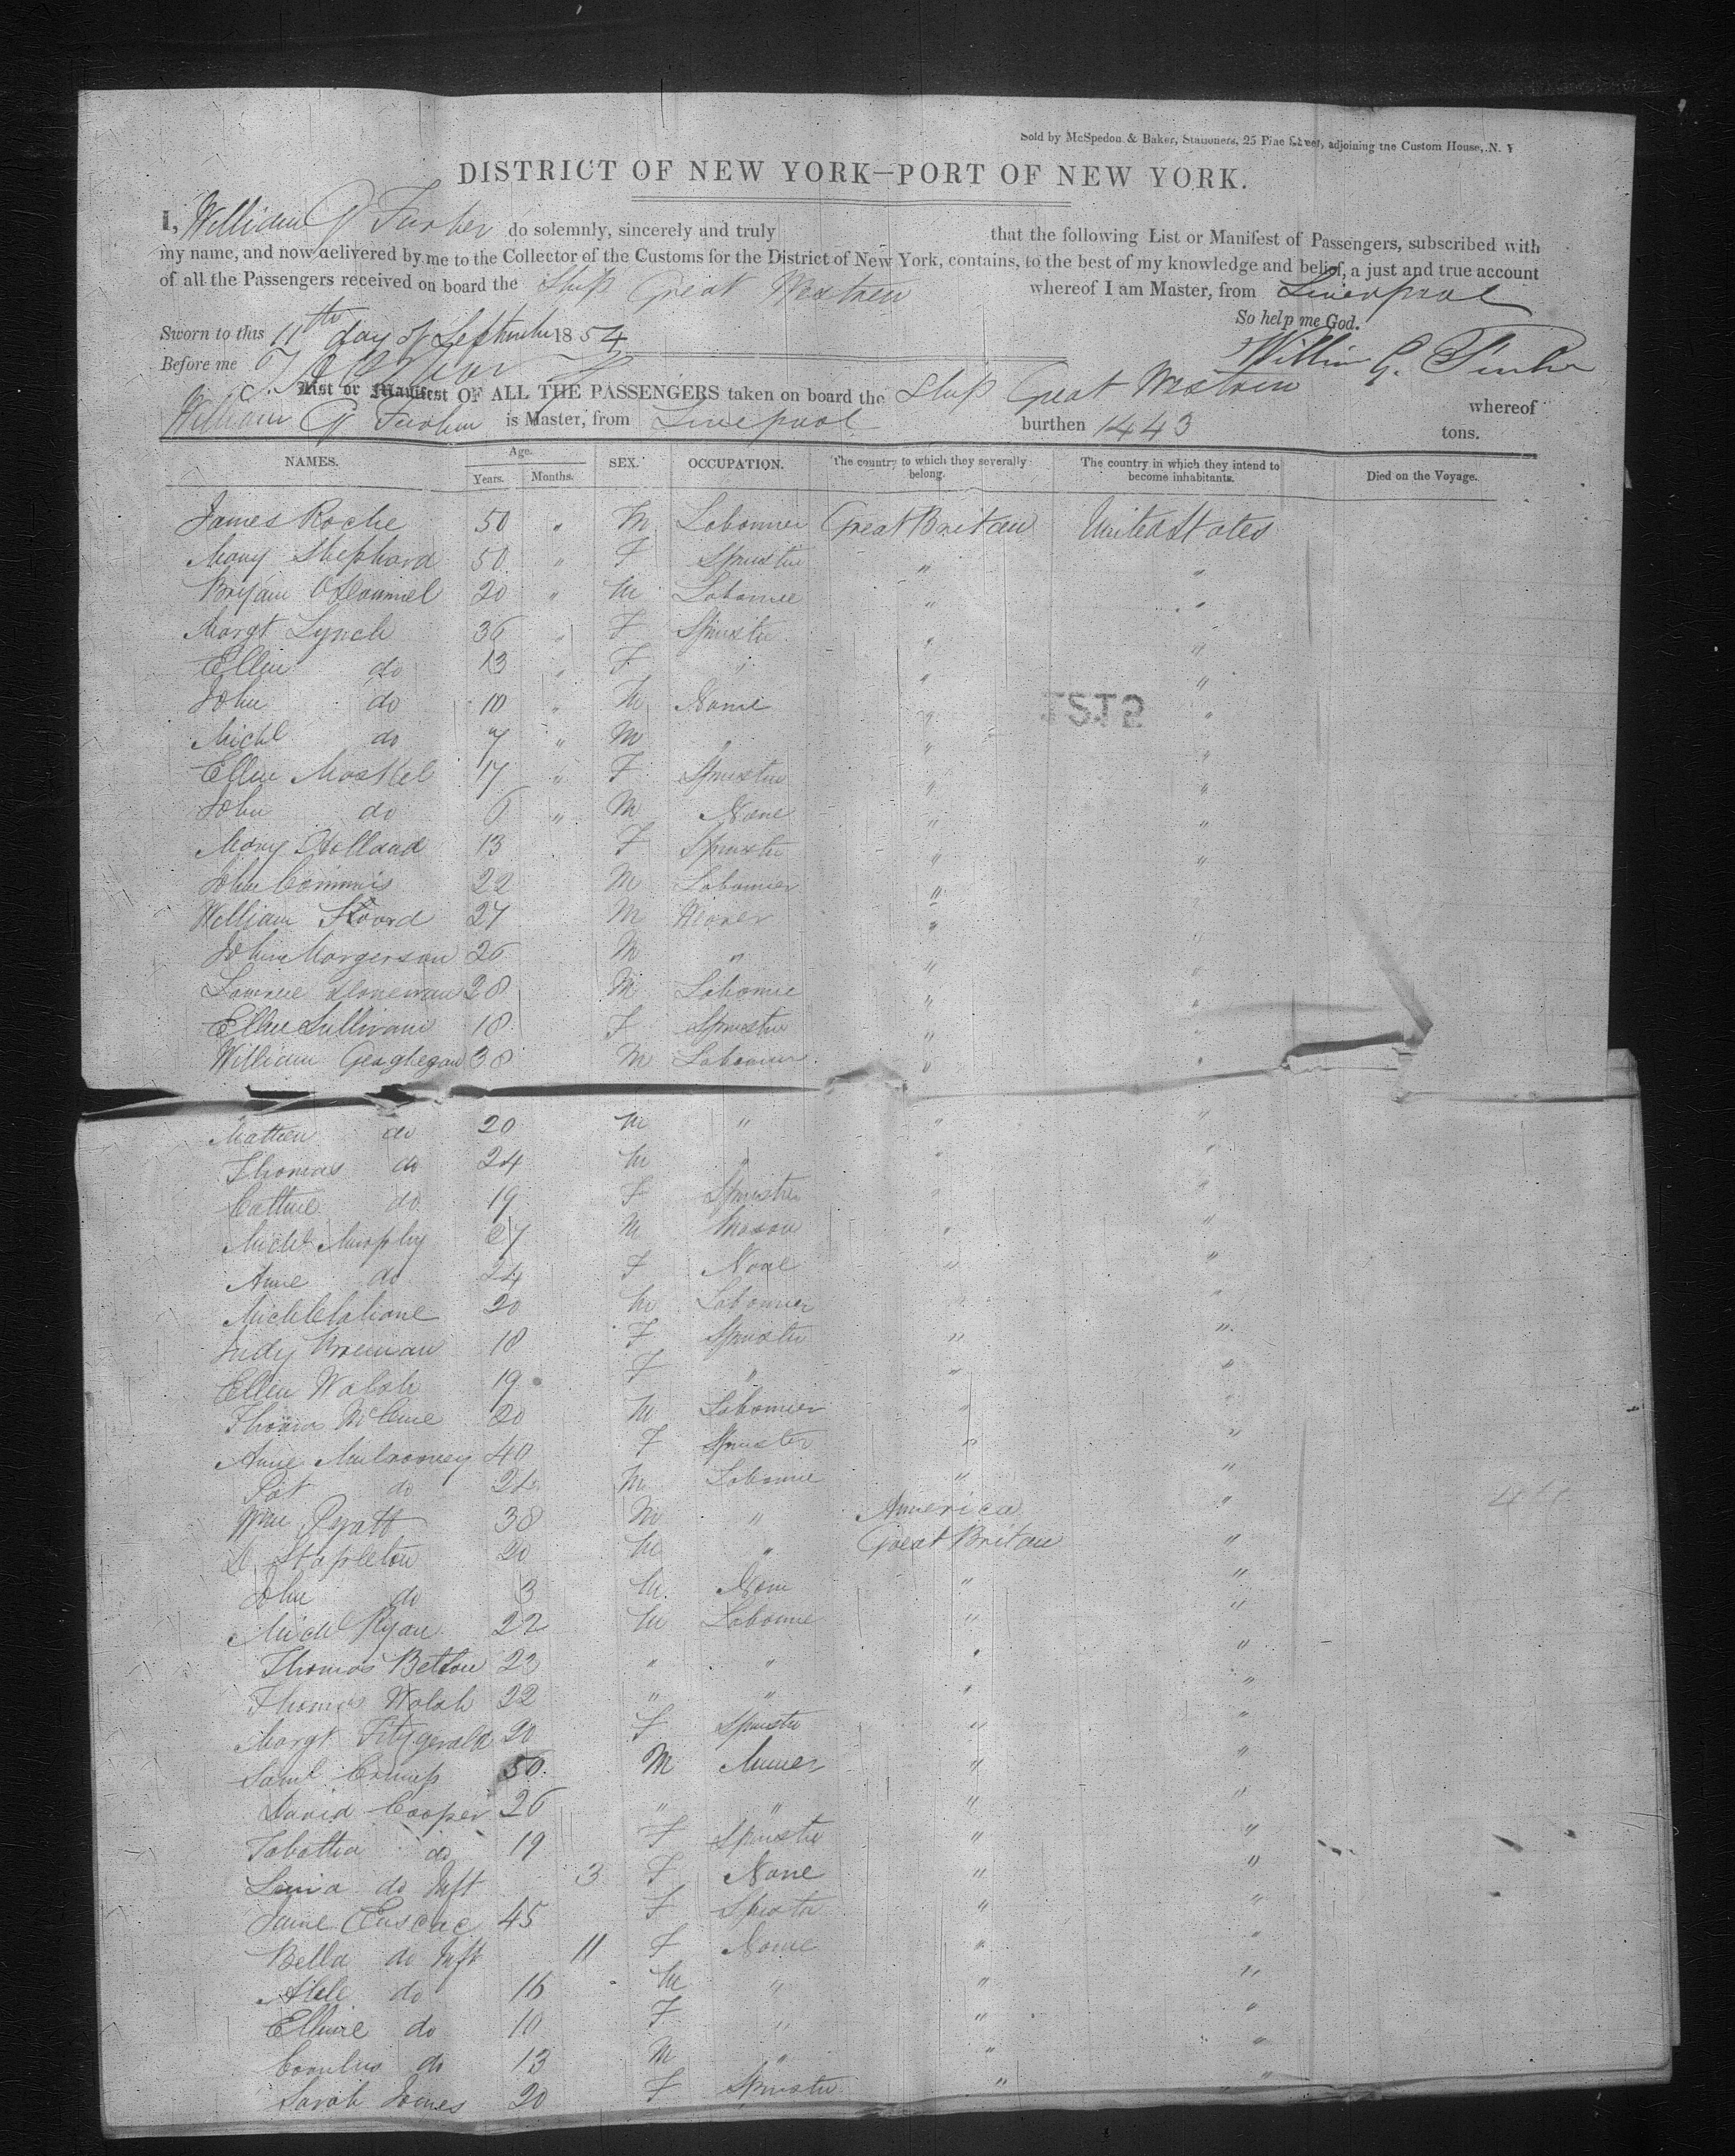 Sold by McSpedon & Baker, Stationers, 25 Pine Street, adjoining the Custom House, N. Y
DISTRICT OF NEW YORK—PORT OF NEW YORK.
I, William G Furber do solemnly, sincerely and truly that the following List or Manifest of Passengers, subscribed with
my name, and now delivered by me to the Collector of the Customs for the District of New York, contains, to the best of my knowledge and belief, a just and true account
of all the Passengers received on board the Ship Great Western whereof I am Master, from Liverpool
So help me God.
Sworn to this 11th day of September 1854
William G. Furber
Before me
List or Manifest OF ALL THE PASSENGERS taken on board the Ship Great Western whereof
William G Furber is Master, from Liverpool burthen 1443 tons.
NAMES. Age. Years. Months. SEX. OCCUPATION. The country to which they severally belong. The country in which they intend to become inhabitants. Died on the Voyage.
James Roche 50 " M Labourier Great Britain United States
Mary Shephard 50 " F Spinster " "
Bryan 20 " M Labourer " "
Margt Lynch 36 " F Spinster " "
Ellen do 13 " F " " "
John do 10 " M None " "
Michl do 7 " M " " "
Ellen 17 " F Spinster " "
John do 6 " M None " "
Mary Holland 13 F Spinster " "
John 22 M Labourier " "
William 27 M " "
John Morgerson 26 M " " "
28 M Labourer " "
Ellen Sullivan 18 F Spinster " "
William Geoghegan 38 M Labourer " "
Mathew do 20 M " " "
Thomas do 24 M " " "
do 19 F Spinster " "
Michl Murphy 27 M Mason " "
Anne do 24 F None " "
Michl 20 M Labourier " "
Judy Brennan 18 F Spinster " "
Ellen Walsh 19 F " " "
Thomas 20 M Labourier " "
Anne Mulrooney 40 F Spinster " "
Pat do 24 M Labourer " "
Wm Pyatt 38 M " America "
Stapleton 20 M " Great Britain "
John do 3 M None " "
Michl Ryan 22 M Labourer " "
Thomas 23 " " " "
Thomas Walsh 22 " " " "
Margt Fitzgerald 20 F Spinster " "
Saml Crump 50 M Miner " "
David Cooper 26 " " " "
Tabatha do 19 F Spinster " "
do Inft 3 F None " "
Jane 45 F Spinster " "
Bella do Inft 11 F None " "
do 16 M " " "
do 10 F " " "
do 13 M " " "
Sarah Jones 20 F Spinster " "